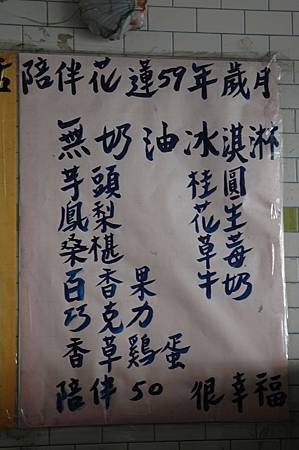 陪伴花蓮59年歲月
無奶油冰淇淋
芋頭 桂圓
鳳梨 花生
桑椹 草莓
百香果 牛奶
巧克力
香草鷄蛋
陪伴50 很幸福